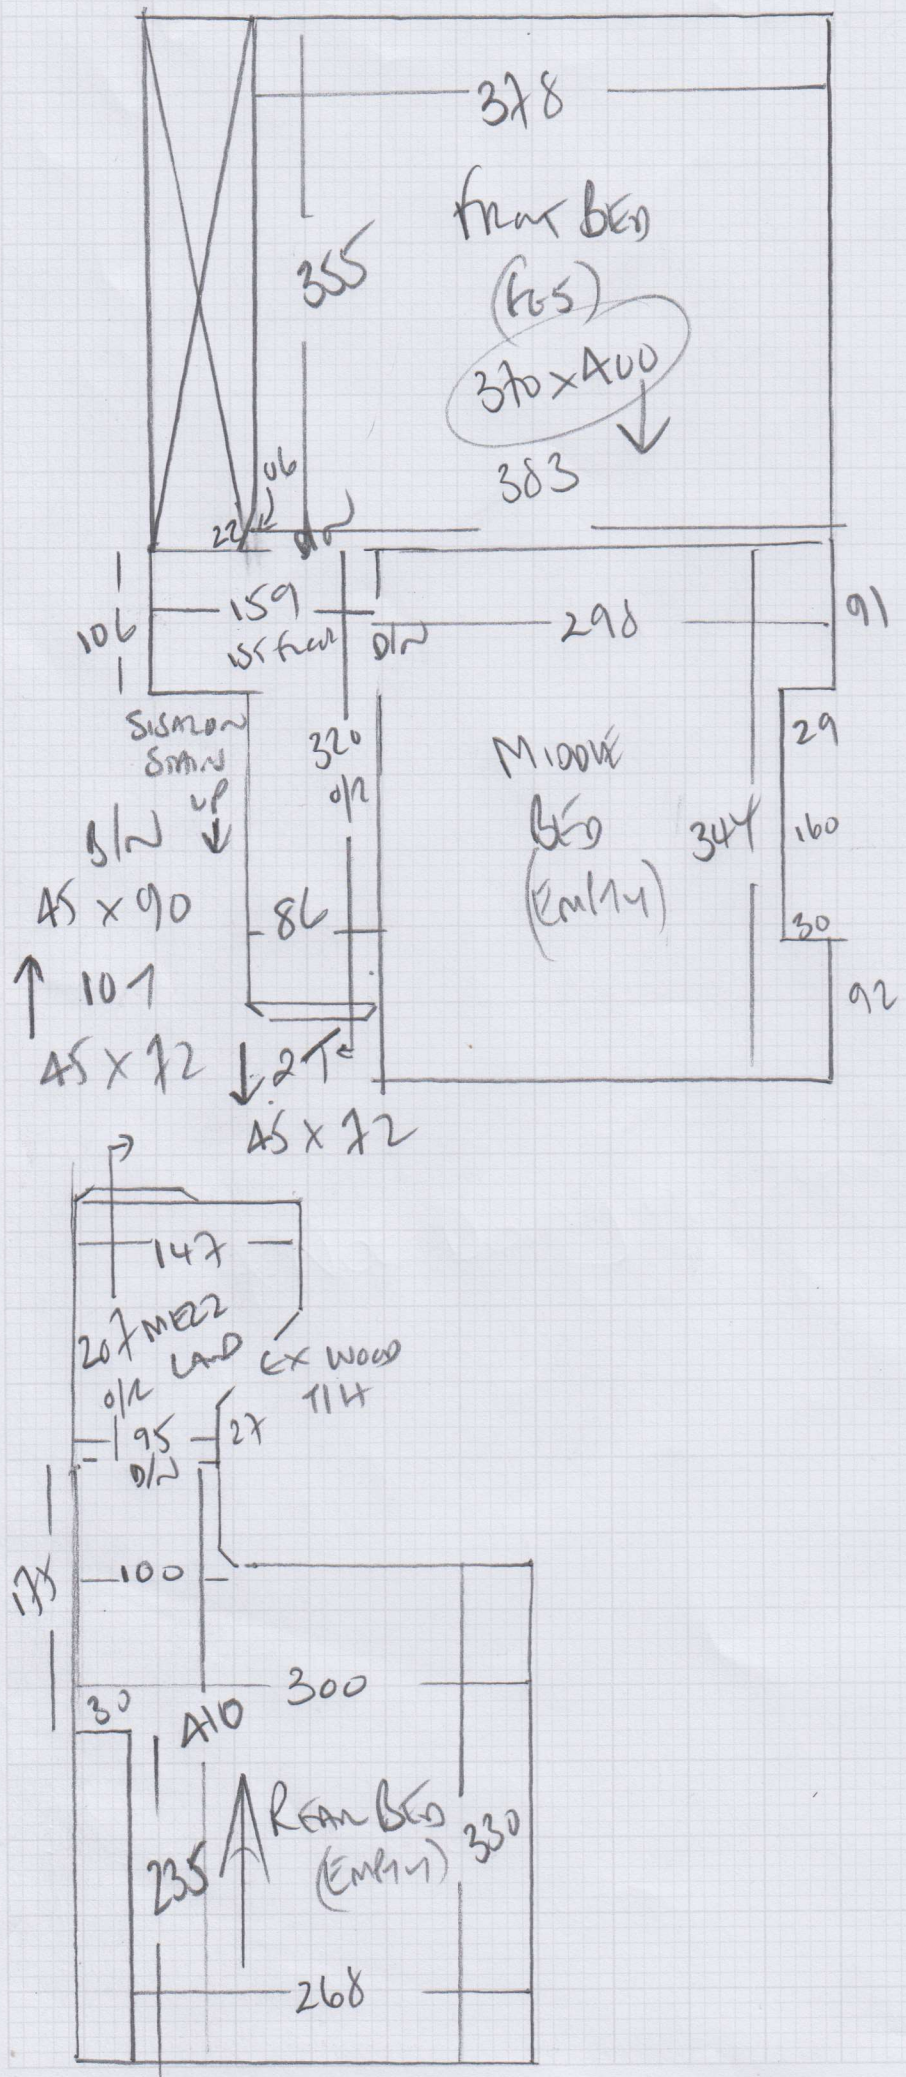 378
FRONT BED
355
(FG5)
370 x 400
383
06
22
D/N
106
159
155 FLOOR
D/N
298
91
SISAL ON
STAIN
UP
320
O/R
MIDDLE
BED
(EMPTY)
347
29
160
30
92
B/N
45 x 90
86
10 1
45 x 72
2T
45 x 72
147
207 MEZZ
LAND
O/R
EX WOOD
T/H
95
D/N
27
175
100
300
30
410
REAR BED
(EMPTY)
330
235
268